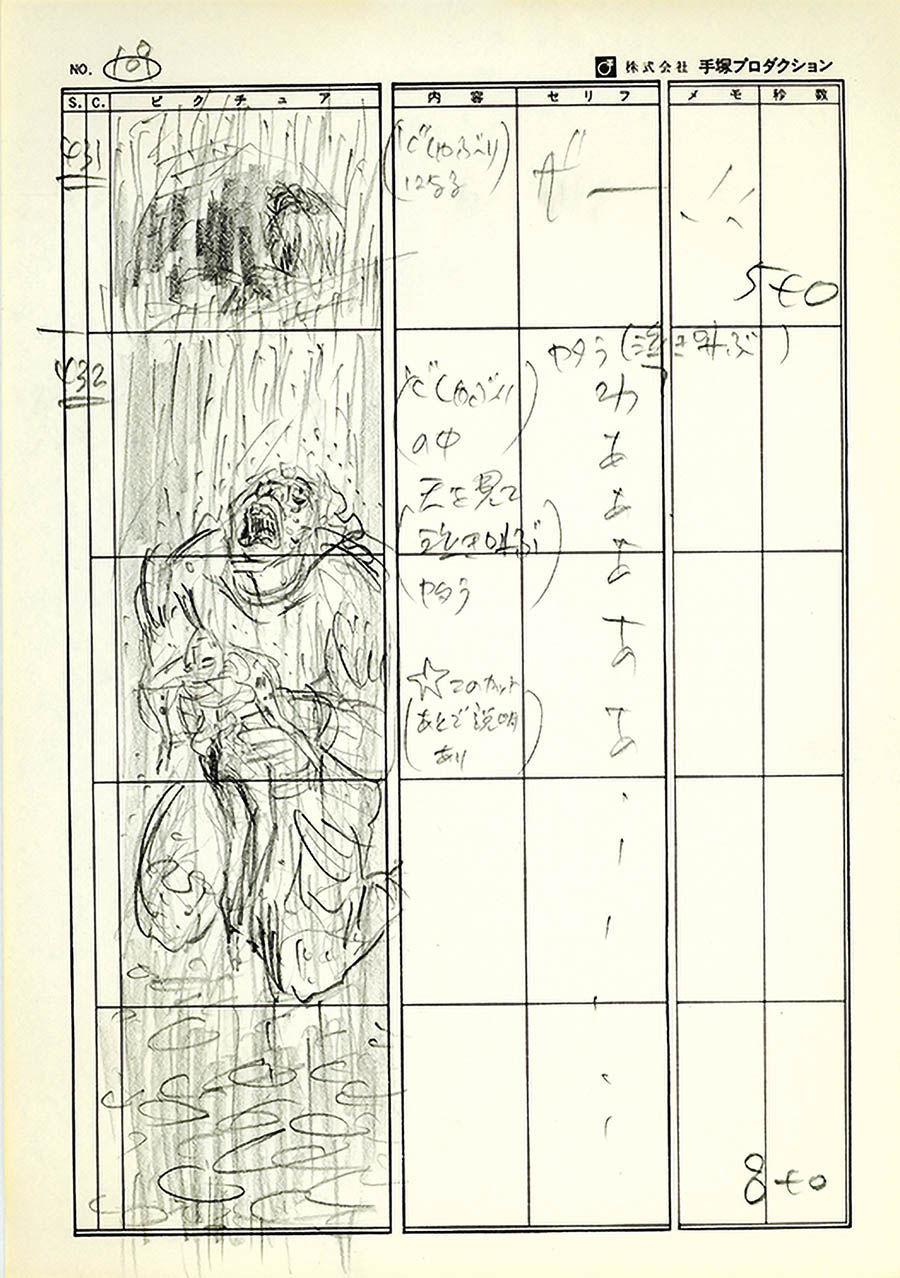 NO. 109
株式会社 手塚プロダクション
S. C. ピクチュア 内容 セリフ メモ 秒数
431
どしゃぶり
になる
ザー
5+0
432
どしゃぶり
の中
天を見て
泣き叫ぶ
(泣き叫ぶ)
わ
あ
あ
あ
あ
あ
☆このカット
あとで説明
あり
8+0